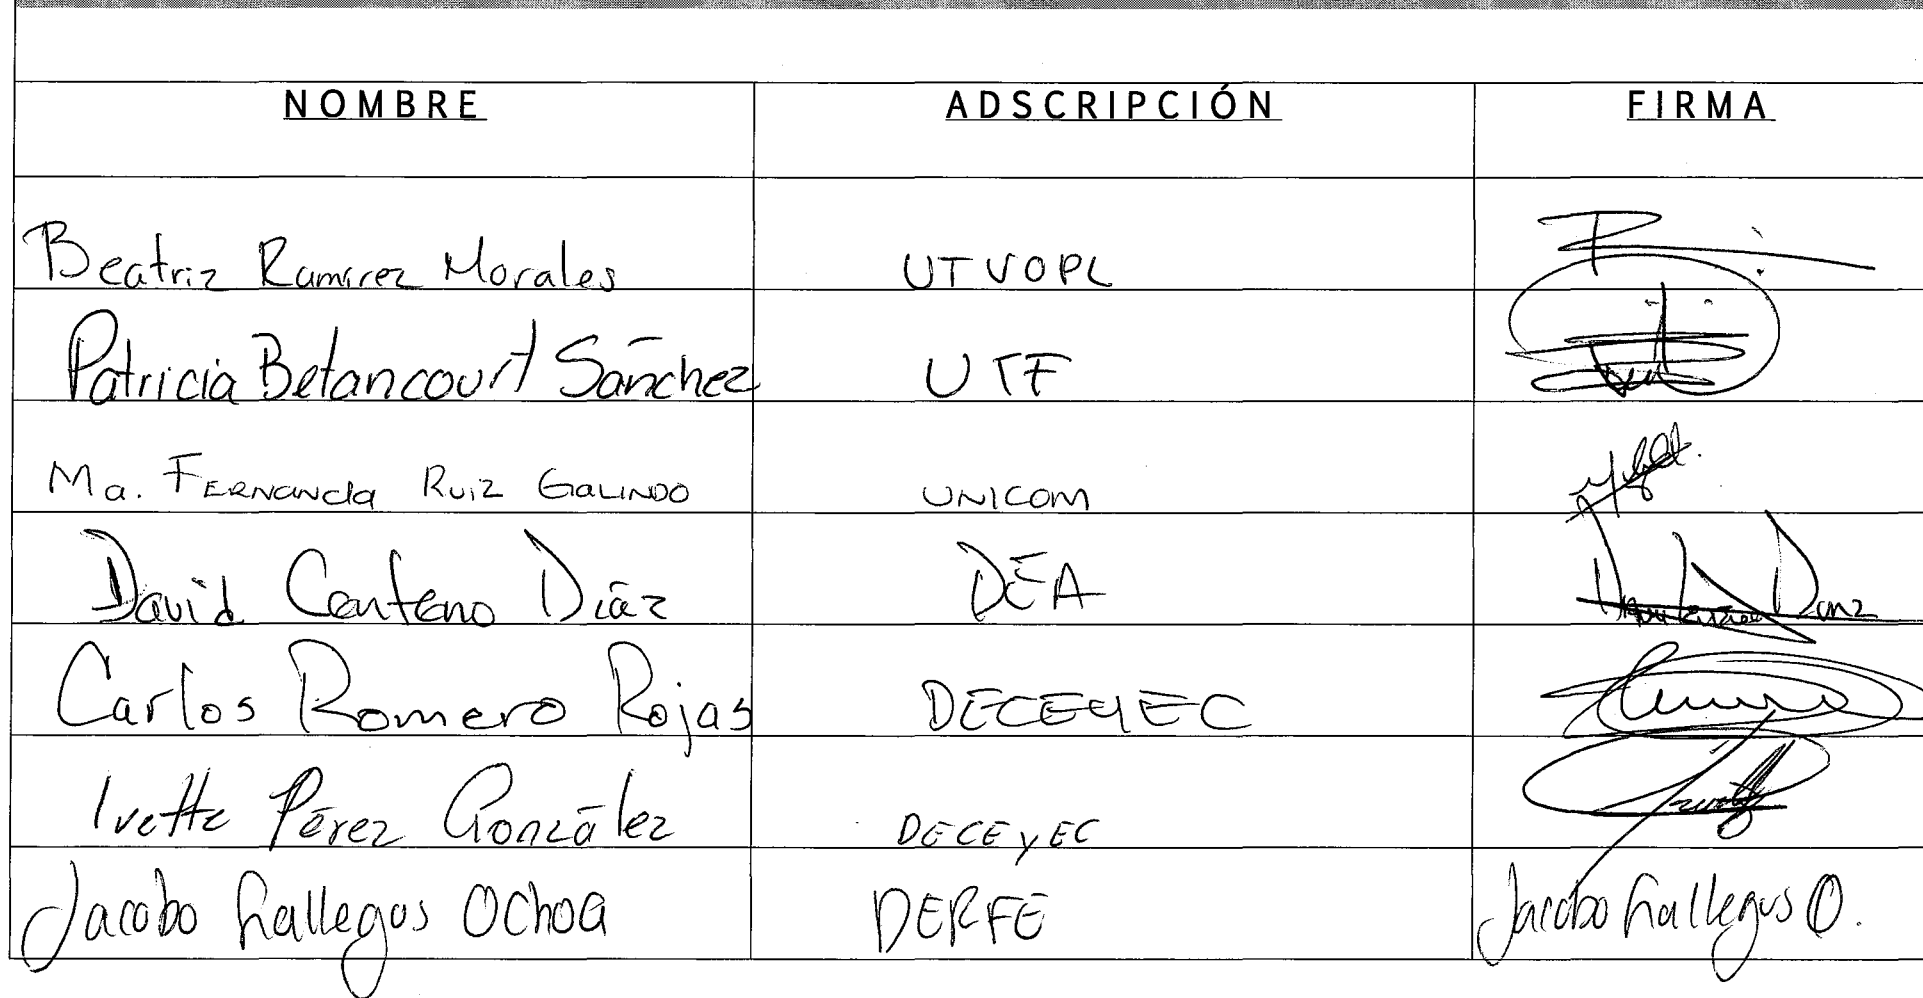 NOMBRE ADSCRIPCIÓN FIRMA
Beatriz Ramírez Morales UTVOPL
Patricia Betancourt Sánchez UTF
Ma. Fernanda Ruiz Galindo UNICOM
David Centeno Díaz DEA
Carlos Romero Rojas DECEYEC
Ivette Pérez González DECEyEC
Jacobo Gallegos Ochoa DERFE Jacobo Gallegos O.